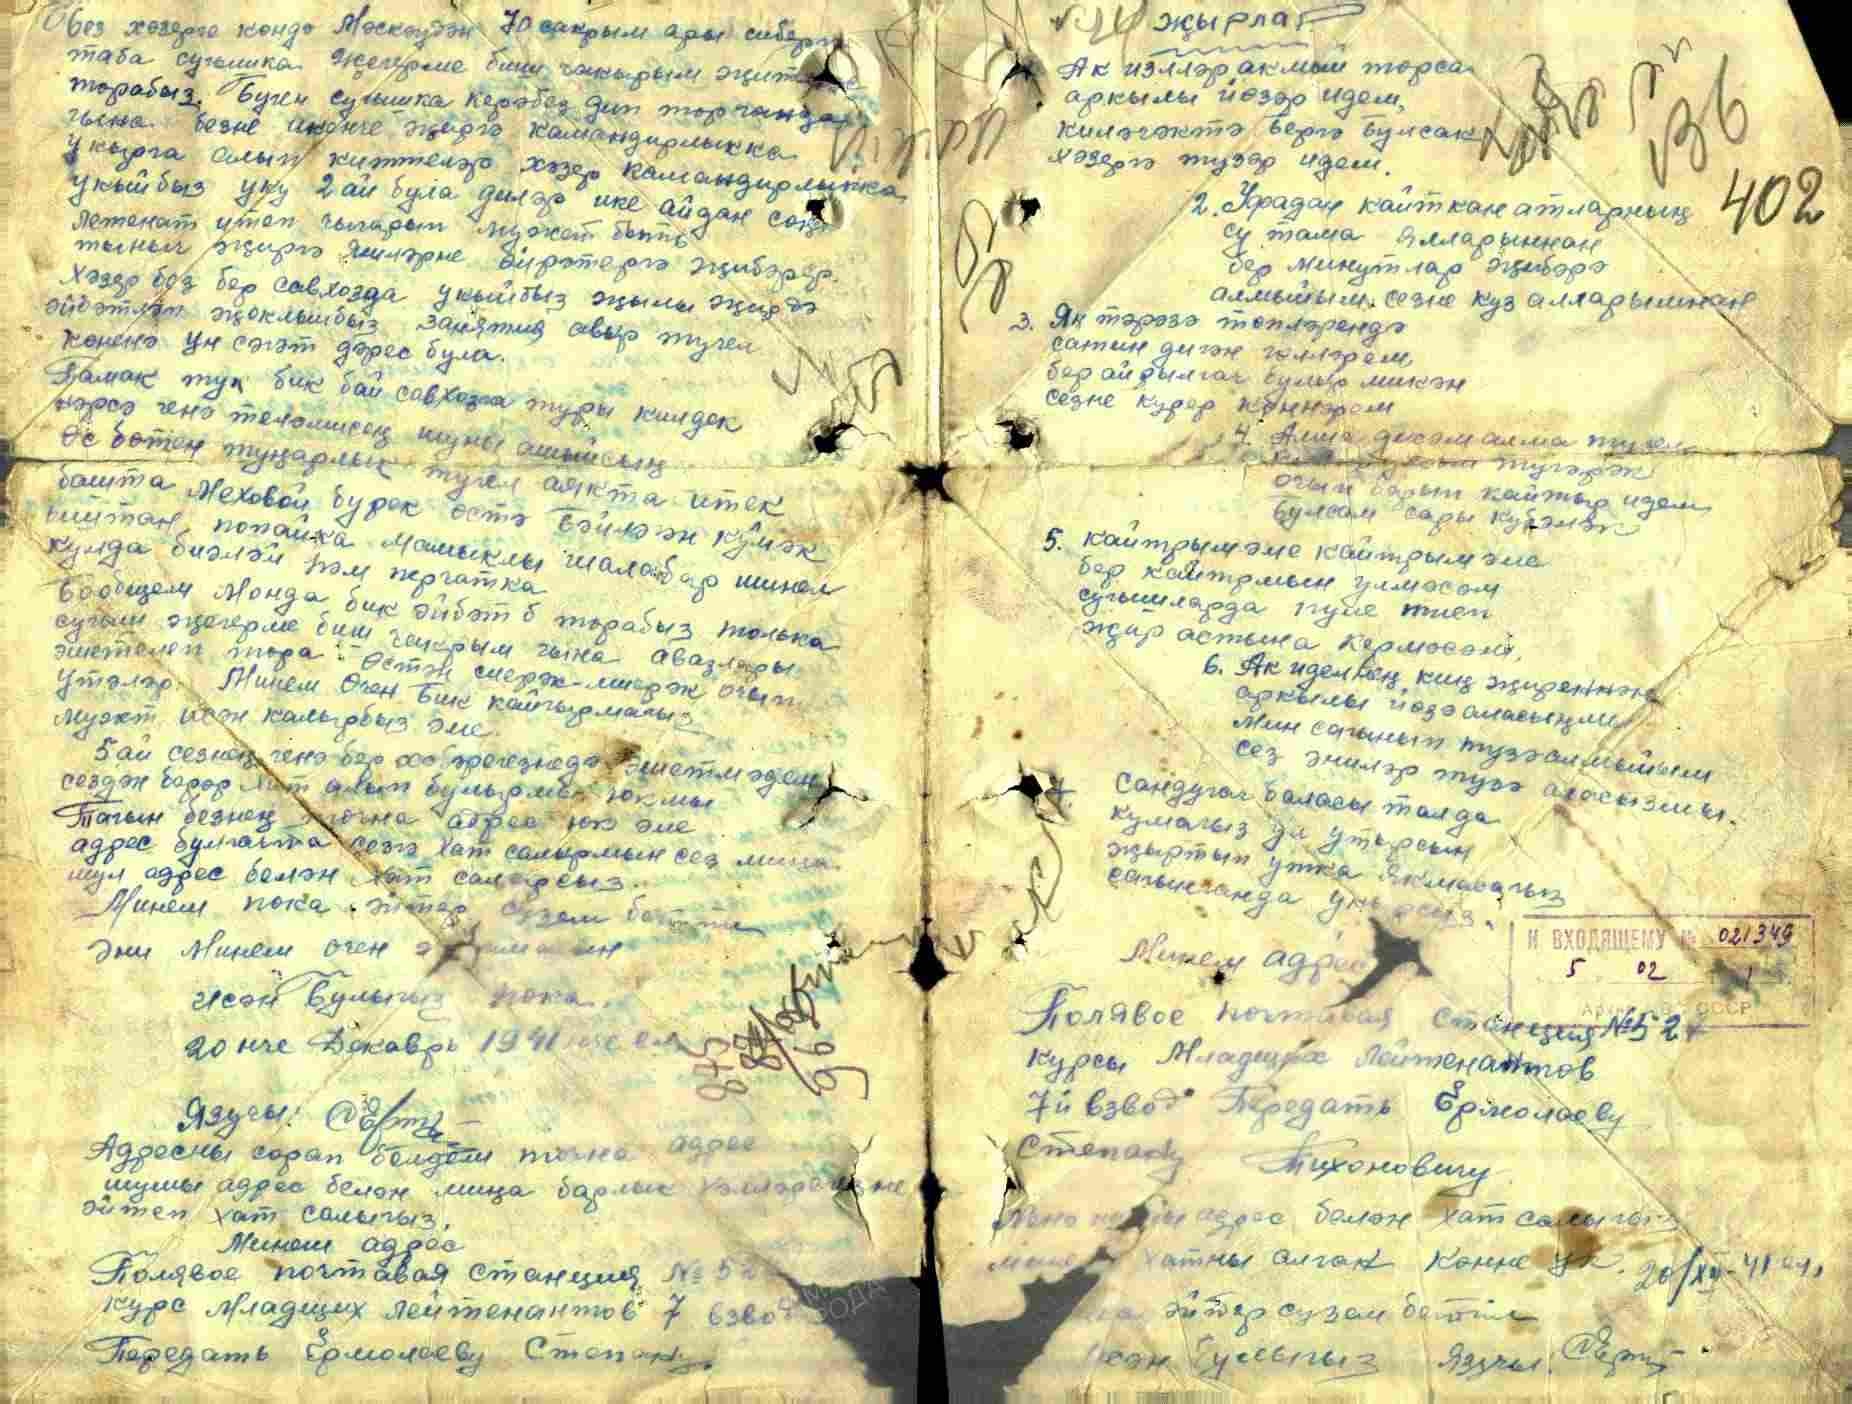 без хәзерге көндә Мәскәүдән 70 чакрым ары сиберга
таба сугышка Җегерме биш чакырым җитмәс
торабыз. Бүген сугышка керәбез дип торганда
гына безне икенче җиргә камандирлыкка
укырга алып киттеләр хәзер камандирлыкка
укыйбыз уку 2 ай була диләр ике айдан соң
летенат итеп чыгарып мужет быть
тыныч җиргә кешләрне өйрәтергә җибәрер.
Хәзер без бер савхозда укыйбыз җылы җирдә
әйбәтләп җоклыйбыз занятия авыр түгел
көненә ун сәгәт дәрес була.
Тамак тук бик бай савхозга туры килдек
нәрсә генә теләмисең шуны ашыйсың
Өс бөтен туңарлык түгел аякта итек
башта Меховой бурек өстә бәйләән күлмәк
попайка мамыклы чалабар шинел
кулда бияләй һәм перчатка
Вообщем Монда бик әйбәт торабыз толька
сугыш җегерме биш чакрым гына авазлары
эшетелеп тора. Өстән шерәк-шерәк очып
үтәләр. Минем Өчен бик кайгырмагыз
Мужет исән калырбыз әле.
5 ай сезнең генә бер хәбәрегезнедә эшетмәдем
сездән берәр хат алып булырмы юкмы
Тагын безнең точна адрес юк әле
адрес булгачта сезгә хат салырмын сез миңа
шул адрес белән хат саларсыз.
Минем пока әйтер сүзем бетте
Әни Минем өчен
исән булыгыз пока.
20 нче Декаврь 1941 нче ел
Язучы: СЕрм
Адресны сорап белдем точна адрес
шушы адрес белән миңа барлык хәлләрегезне
әйтеп хат салыгыз.
Минем адрес
Полявое почтавая станция № 52
курс Младщих лейтенантов 7 взвод
Передать Ермолаеву Степану.
Җырлар
Ак изләләр акмый торса
аркылы йөзәр идем,
киләчәктә бергә булсак
хәзергә түзәр идем.
2. Уфадан кайткан атларның
су тама ялларыннан
бер минутлар җибәрә
алмыйым сезне күз алларымнан
3. Як тәрәзә төпләрендә
сатин дигән гөлләрем,
бер айдылгач булыр микән
сезне күрер көннәрем
4. Алма дисәм алма түгел
түгәрәк
очып барып кайтыр идем
булсам сары күбәләк
5. кайтрым әле кайтрым әле
бер кайтрмын үлмәсәм
сугышларда пуле тиеп
җир астына кермәсәм,
6. Ак иделнең киң җиреннән
аркылы йөзә аласыңмы
Мин сагынып түзә алмыйым
сез әниләр түзә аласызмы.
7. Сандугач баласы талда
кумагыз ул утырсын
җыртып утка якмагыз
сагынганда укырсыз.
Минем адрес
Полявое почтавая станция № 52
курсы Младщих лейтенантов
7й взвод Передать Ермолаеву
Степану Тихоновичу
адрес белән хат салыгыз
хатны алган көнне үк. 20/XII-41 ел,
әйтер сүзем бетте
исән булыгыз язучы. СЕрм
402
845
96
К ВХОДЯЩЕМУ № 021349
5 02 1